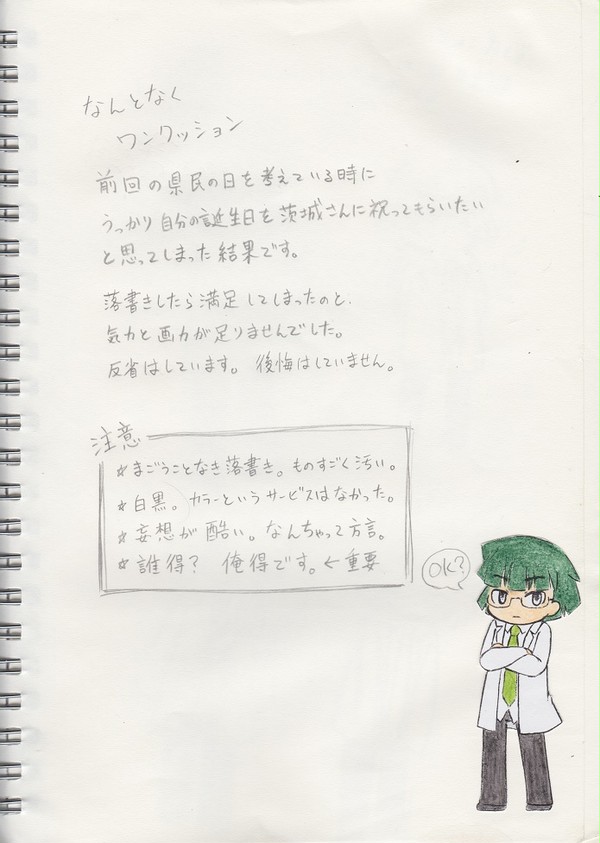 なんとなく
ワンクッション
前回の県民の日を考えている時に
うっかり自分の誕生日を茨城さんに祝ってもらいたい
と思ってしまった結果です。
落書きしたら満足してしまったのと、
気力と画力が足りませんでした。
反省はしています。 後悔はしていません。
注意
☆まごうことなき落書き。ものすごく汚い。
☆白黒。カラーというサービスはなかった。
☆妄想が酷い。なんちゃって方言。
☆誰得？ 俺得です。←重要
OK?